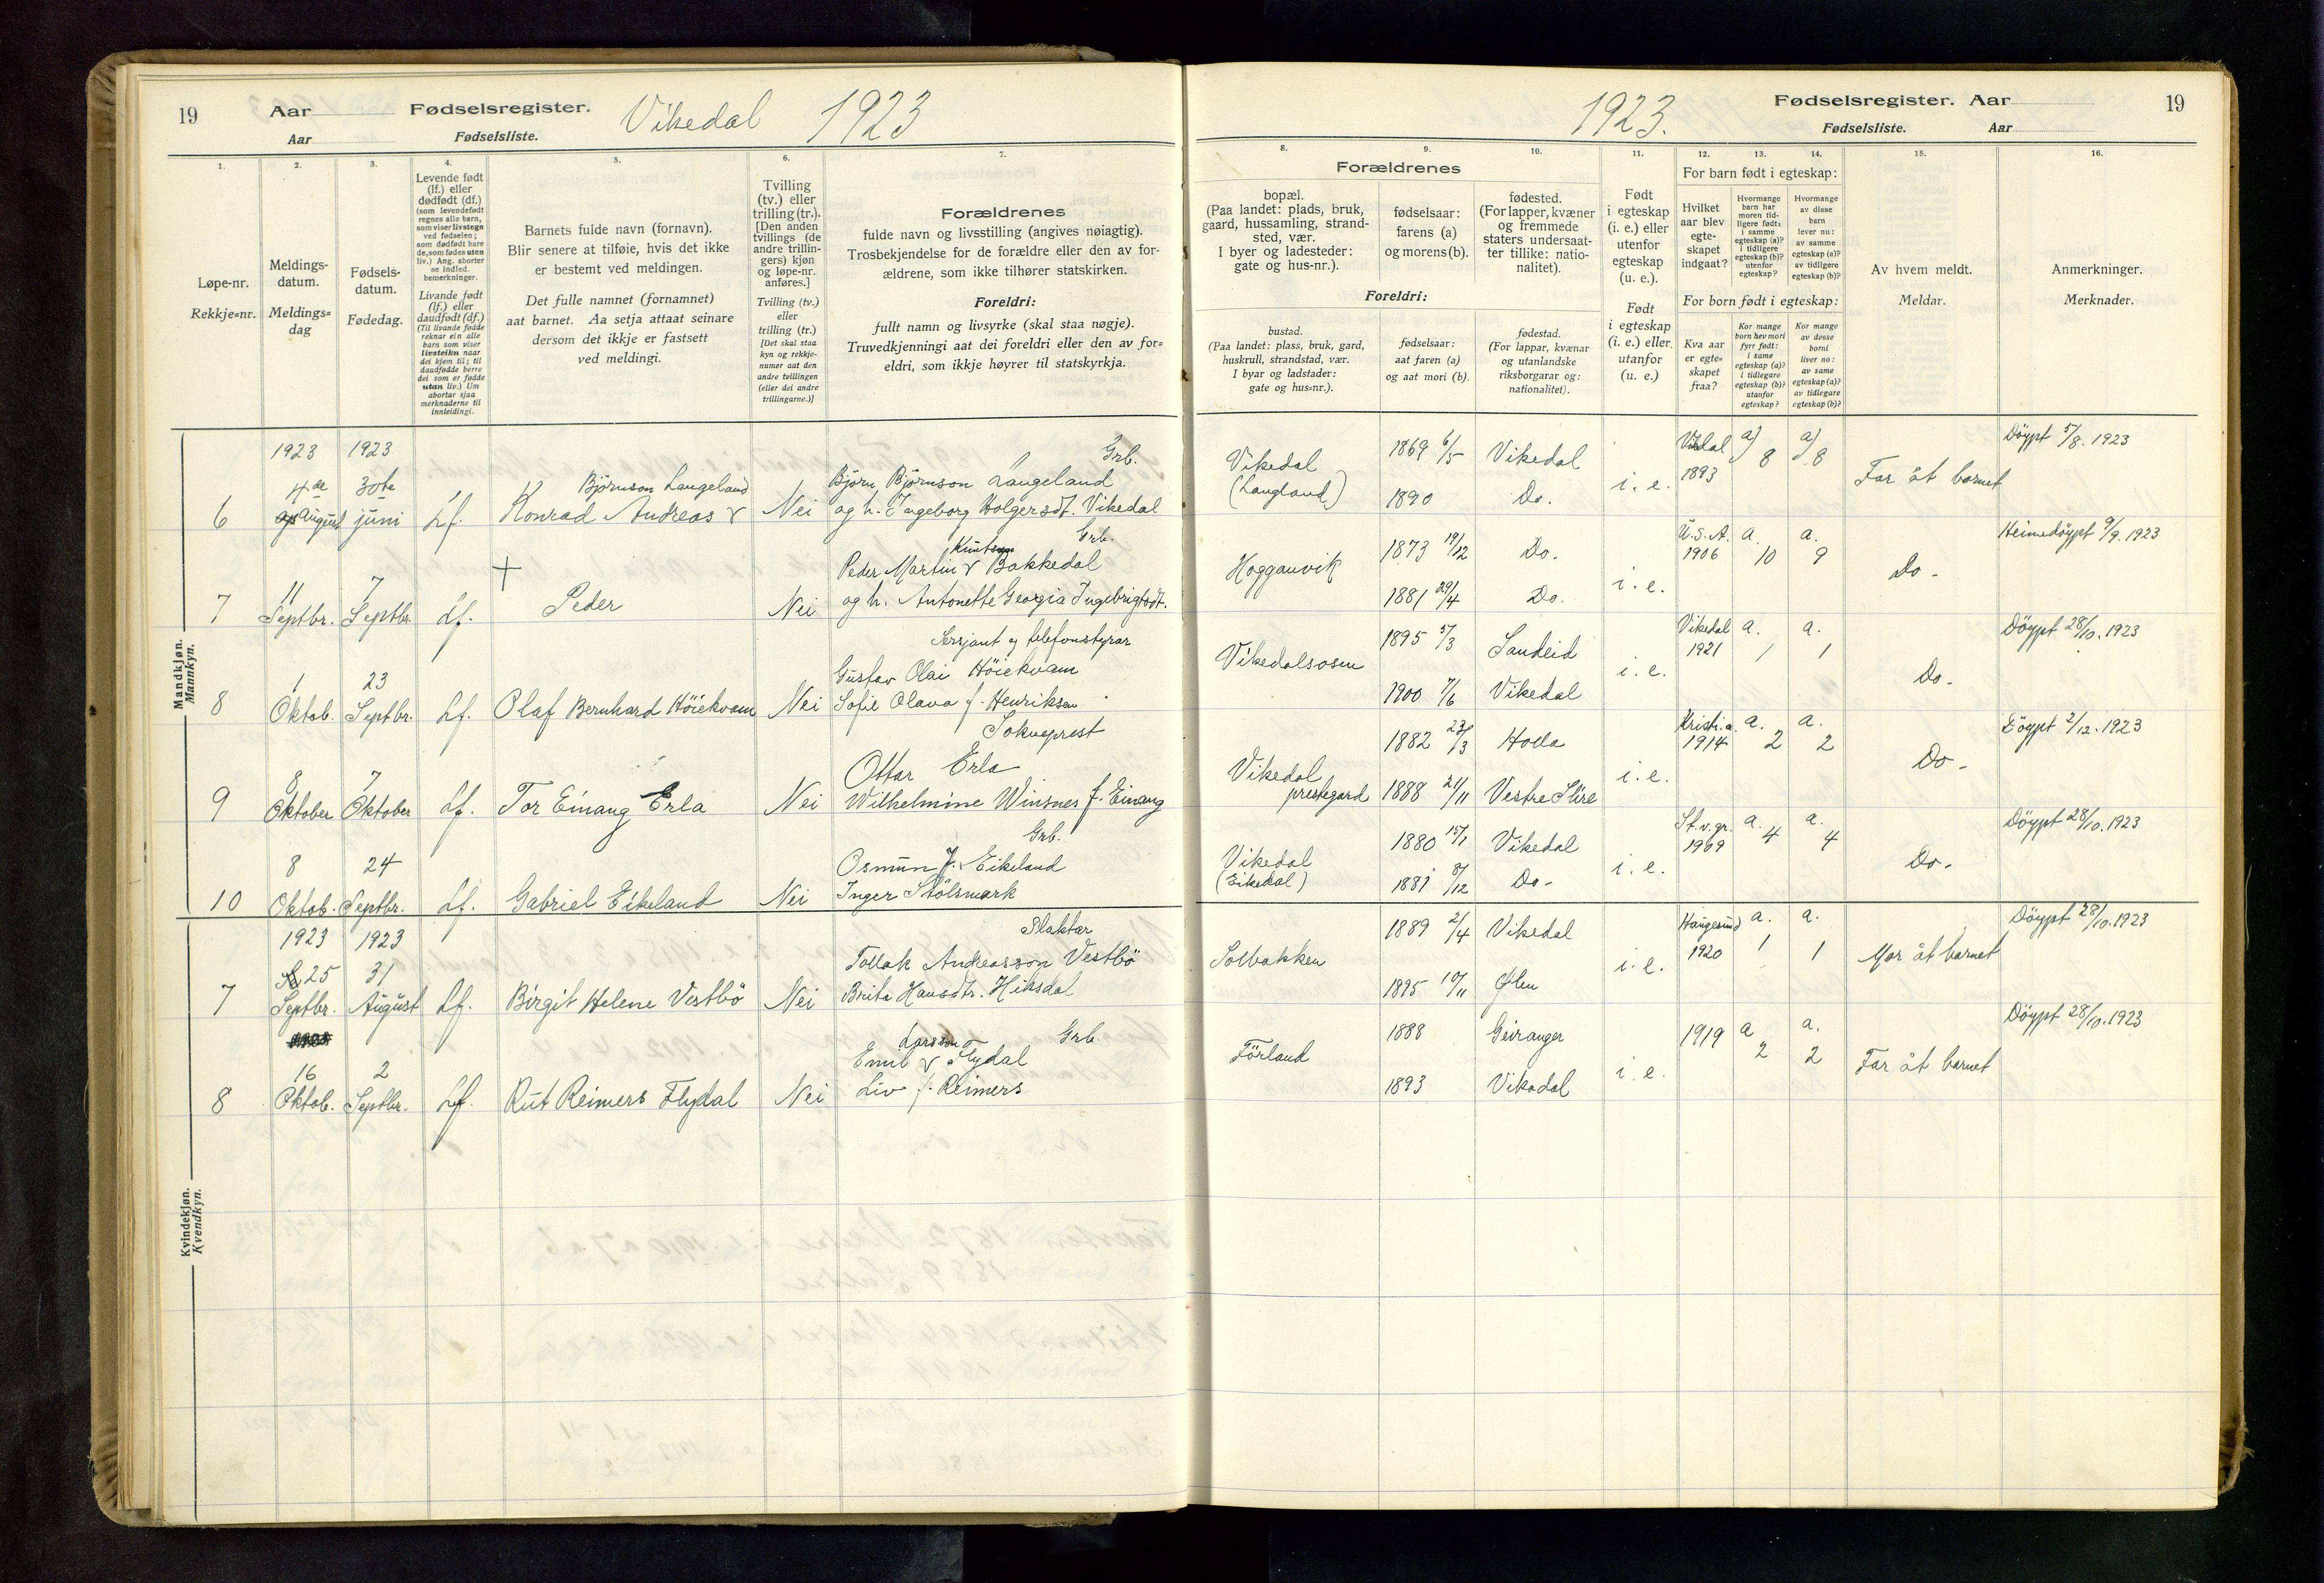 19
Aar
Fødselsregister.
Vikedal 1923
Aar
Fødselsliste.
1.
2.
3.
4.
5.
6.
7.
Løpe-nr.
Rekkje=nr.
Meldings-
datum.
Meldings=
dag
Fødsels-
datum.
Fødedag.
Levende født
(lf.) eller
dødfødt (df.)
(som levendefødt
regnes alle barn,
som viser livstegn
ved fødselen;
som dødfødt bare
de, som fødes uten
liv.) Ang. aborter
se indled.
bemerkninger.
Livande født
(lf.) eller
daudfødt (df.)
(Til livande fødde
reknar ein alle
barn som viser
livsteikn naar
dei kjem til; til
daudfødde berre
dei som er fødde
utan liv.) Um
abortar sjaa
merknaderne til
innleidingi.
Barnets fulde navn (fornavn).
Blir senere at tilføie, hvis det ikke
er bestemt ved meldingen.
Det fulle namnet (fornamnet)
aat barnet. Aa setja attaat seinare
dersom det ikkje er fastsett
ved meldingi.
Tvilling
(tv.) eller
trilling (tr.).
[Den anden
tvillings (de
andre trillin-
gers) kjøn
og løpe-nr.
anføres.]
Tvilling (tv.)
eller
trilling (tr.)
[Det skal staa
kyn og rekkje-
numer aat den
andre tvillingen
(eller dei andre
trillingarne.)]
Forældrenes
fulde navn og livsstilling (angives nøiagtig).
Trosbekjendelse for de forældre eller den av for-
ældrene, som ikke tilhører statskirken.
Foreldri:
fullt namn og livsyrke (skal staa nøgje).
Truvedkjenningi aat dei foreldri eller den av for=
eldri, som ikkje høyrer til statskyrkja.
Mandkjøn.
Mannkyn.
1923 1923 Grb.
4de 30te Bjørnson Langeland Bjørn Bjørnson Langeland
6 August juni Lf. Konrad Andreas v Nei og h. Ingeborg Holgersdt. Vikedal
Grb.
Knutson
11 7 + Peder Martin v Bakkedal
7 Septbr. Septbr. Lf. Peder Nei og h. Antonette Georgia Ingebrigtsdt.
Sersjant og telefonstyrar
1 23 Gustav Olai Höiekvam
8 Oktob. Septbr. Lf. Olaf Bernhard Höiekvam Nei Sofie Olava f. Henriksen
Sokneprest
8 7 Ottar Erla
9 Oktober Oktober Lf. Tor Einang Erla Nei Wilhelmine Winsnes f. Einang
Grb.
8 24 Osmun J. Eikeland
10 Oktob. Septbr. Lf. Gabriel Eikeland Nei Inger Stölsmark
Kvindekjøn.
Kvendkyn.
1923 1923 Slaktar
25 31 Tollak Andreasson Vestbö
7 Septbr. August Lf. Birgit Helene Vestbö Nei Brita Hansdtr. Hiksdal
1923 Larsson Grb.
16 2 Emil v Flydal
8 Oktob. Septbr. Lf. Rut Reimers Flydal Nei Liv f. Reimers
1923.
Fødselsregister. Aar
19
Fødselsliste.
Aar
8.
9.
10.
11.
12.
13.
14.
15.
16.
Forældrenes
bopæl.
(Paa landet: plads, bruk,
gaard, hussamling, strand-
sted, vær.
I byer og ladesteder:
gate og hus-nr.).
fødselsaar:
farens (a)
og morens (b).
fødested.
(For lapper, kvæner
og fremmede
staters undersaat-
ter tillike: natio-
nalitet).
Foreldri:
bustad.
(Paa landet: plass, bruk, gard,
huskrull, strandstad, vær.
I byar og ladstader:
gate og hus=nr.).
fødselsaar:
aat faren (a)
og aat mori (b).
fødestad.
(For lappar, kvænar
og utanlandske
riksborgarar og:
nationalitet).
Født
i egteskap
(i. e.) eller
utenfor
egteskap
(u. e.).
Født
i egteskap
(i. e.) eller
utanfor
(u. e.)
For barn født i egteskap:
Hvilket
aar blev
egte-
skapet
indgaat?
Hvormange
barn har
moren tid-
ligere født:
i samme
egteskap (a)?
i tidligere
egteskap (b)?
utenfor
egteskap?
Hvormange
av disse
barn
lever nu:
av samme
egteskap (a)?
av tidligere
egteskap (b)?
For born født i egteskap:
Kva aar
er egte=
skapet
fraa?
Kor mange
born hev mori
fyrr født:
i same
egteskap (a)?
i tidlegare
egteskap (b)?
utanfor
egteskap?
Kor mange
av desse
borni
liver no:
av same
egteskap (a)?
av tidlegare
egteskap (b)?
Av hvem meldt.
Meldar.
Anmerkninger.
Merknader.
Vikedal 1869 6/5 Vikedal 1893 a) 8 a) 8 Döypt 5/8. 1923
(Langland) 1890 Do. i. e. Far åt barnet
Hogganvik 1873 19/12 Do. U.S.A. 1906 a. 10 a. 9 Heimedöypt 9/9. 1923
1881 29/4 Do. i. e. Do.
Vikedalsosen 1895 5/3 Sandeid Vikedal 1921 a. 1 a. 1 Döypt 28/10. 1923
1900 7/6 Vikedal i. e. Do.
Vikedal 1882 23/3 Holla Kristi.a. 1914 a. 2 a. 2 Döypt 2/12. 1923
prestegard 1888 21/11 Vestre Slire i. e. Do.
Vikedal 1880 15/1 Vikedal St.v.gr. 1909 a. 4 a. 4 Döypt 28/10. 1923
1881 8/12 Do. i. e. Do.
Solbakken 1889 2/4 Vikedal Haugesund 1920 a. 1 a. 1 Döypt 28/10. 1923
1895 10/11 Ølen i. e. Mor åt barnet
Förland 1888 Geiranger 1919 a 2 a. 2 Döypt 28/10. 1923
1893 Vikedal i. e. Far åt barnet